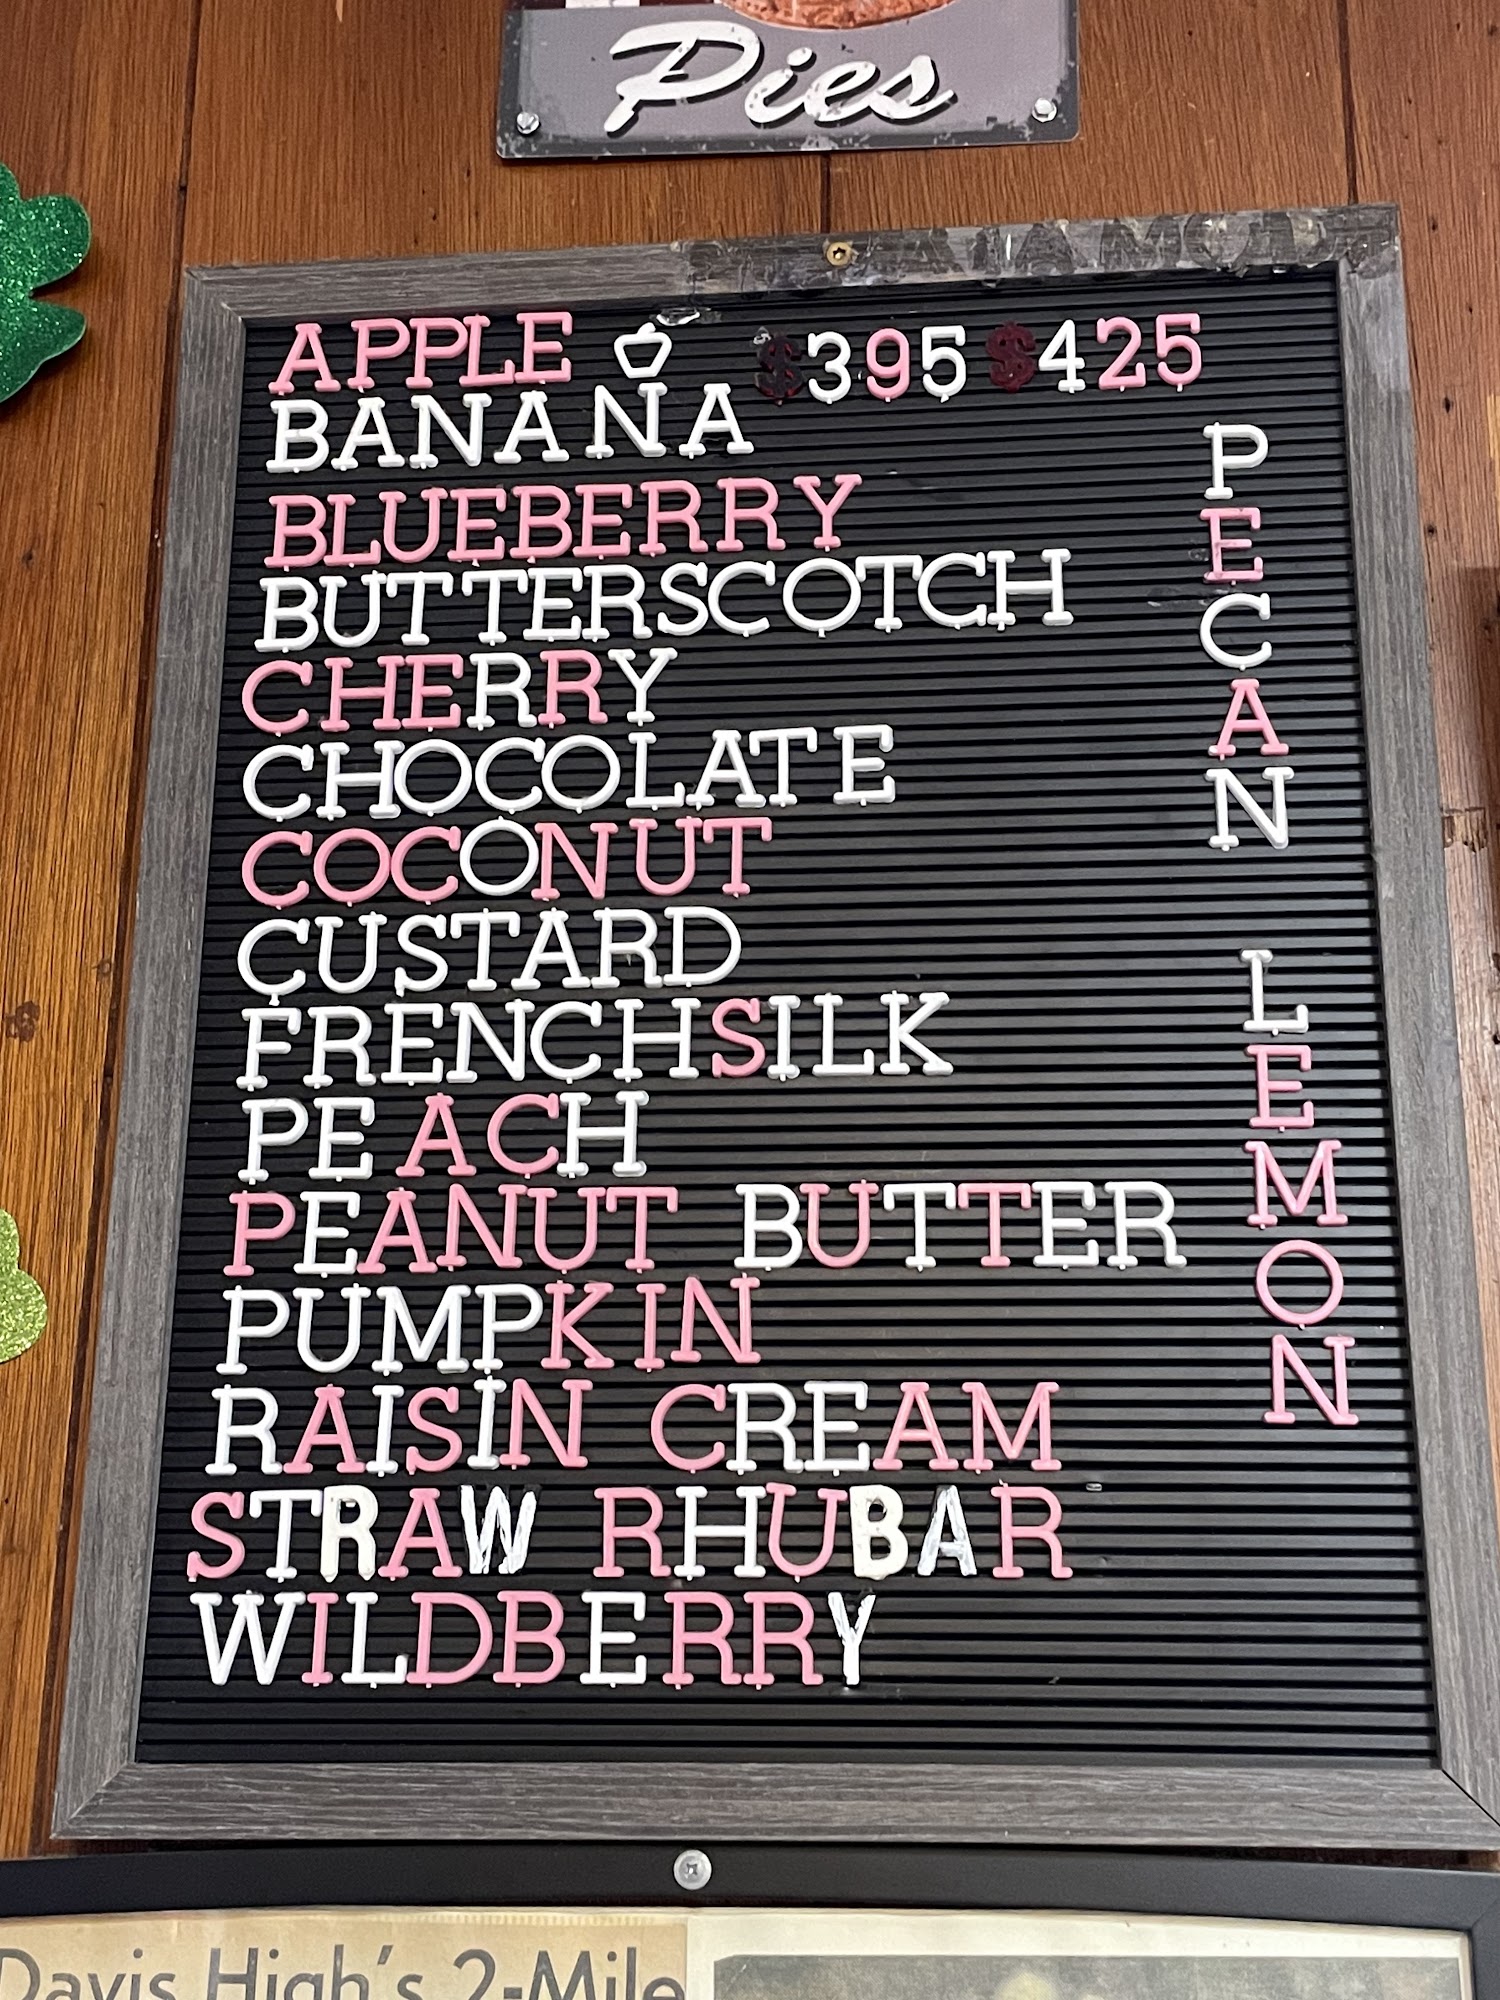 Pies
APPLE $395 $425
BANANA
BLUEBERRY
BUTTERSCOTCH
CHERRY
CHOCOLATE
COCONUT
CUSTARD
FRENCHSILK
PEACH
PEANUT BUTTER
PUMPKIN
RAISIN CREAM
STRAW RHUBAR
WILDBERRY
PECAN
LEMON
Davis High's 2-Mile